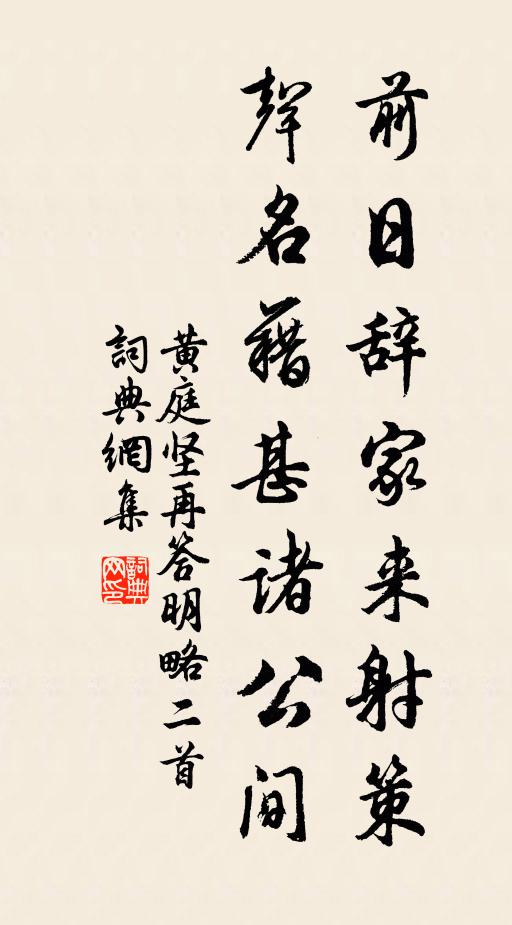 前日辞家来射策
聲名藉甚諸公间
黄庭坚再答明略二首
詞典網集
詞典网印